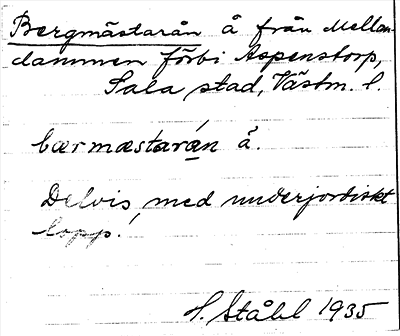 Bergmästarån å från Mellan-
dammen förbi Aspenstorp,
Sala stad, Västm. l.
bærmæstarán å.
Delvis med underjordiskt
lopp!
H. Ståhl 1935